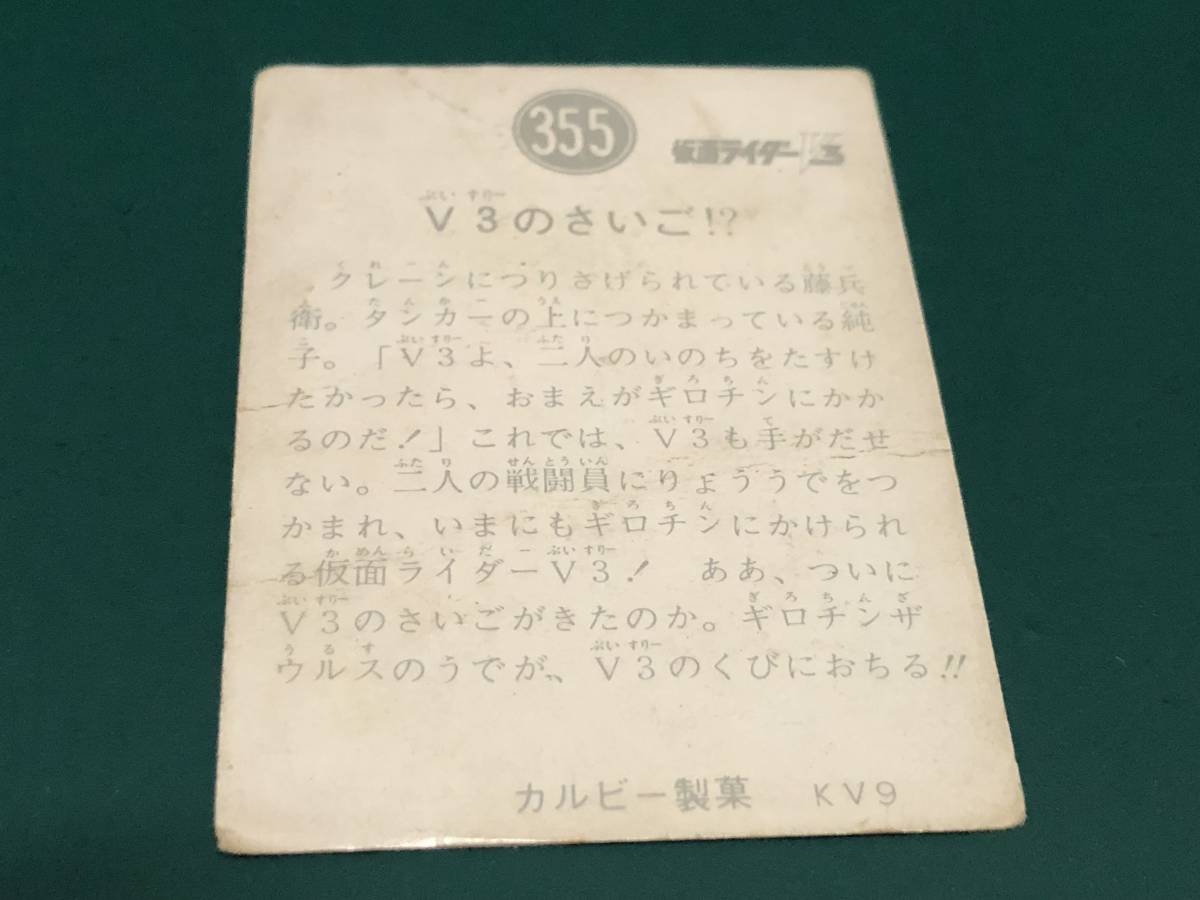 355
仮面ライダーV3
V3のさいご!?
クレーンにつりさげられている藤兵
衛。タンカーの上につかまっている純
子。「V3よ、二人のいのちをたすけ
たかったら、おまえがギロチンにかか
るのだ!」これでは、V3も手がだせ
ない。二人の戦闘員にりょううでをつ
かまれ、いまにもギロチンにかけられ
る仮面ライダーV3! ああ、ついに
V3のさいごがきたのか。ギロチンザ
ウルスのうでが、V3のくびにおちる!!
カルビー製菓 KV9